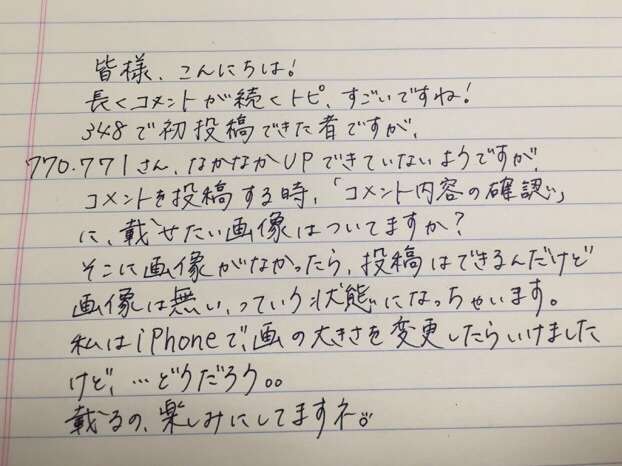 皆様、こんにちは!
長くコメントが続くトピ、すごいですね!
348で初投稿できた者ですが、
770.771さん、なかなかUPできていないようですが、
コメントを投稿する時、「コメント内容の確認」
に、載せたい画像はついてますか?
そこに画像がなかったら、投稿はできるんだけど
画像は無い、っていう状態になっちゃいます。
私はiPhoneで、画の大きさを変更したらいけました
けど、…どうだろう。。
載るの、楽しみにしてますネ。。